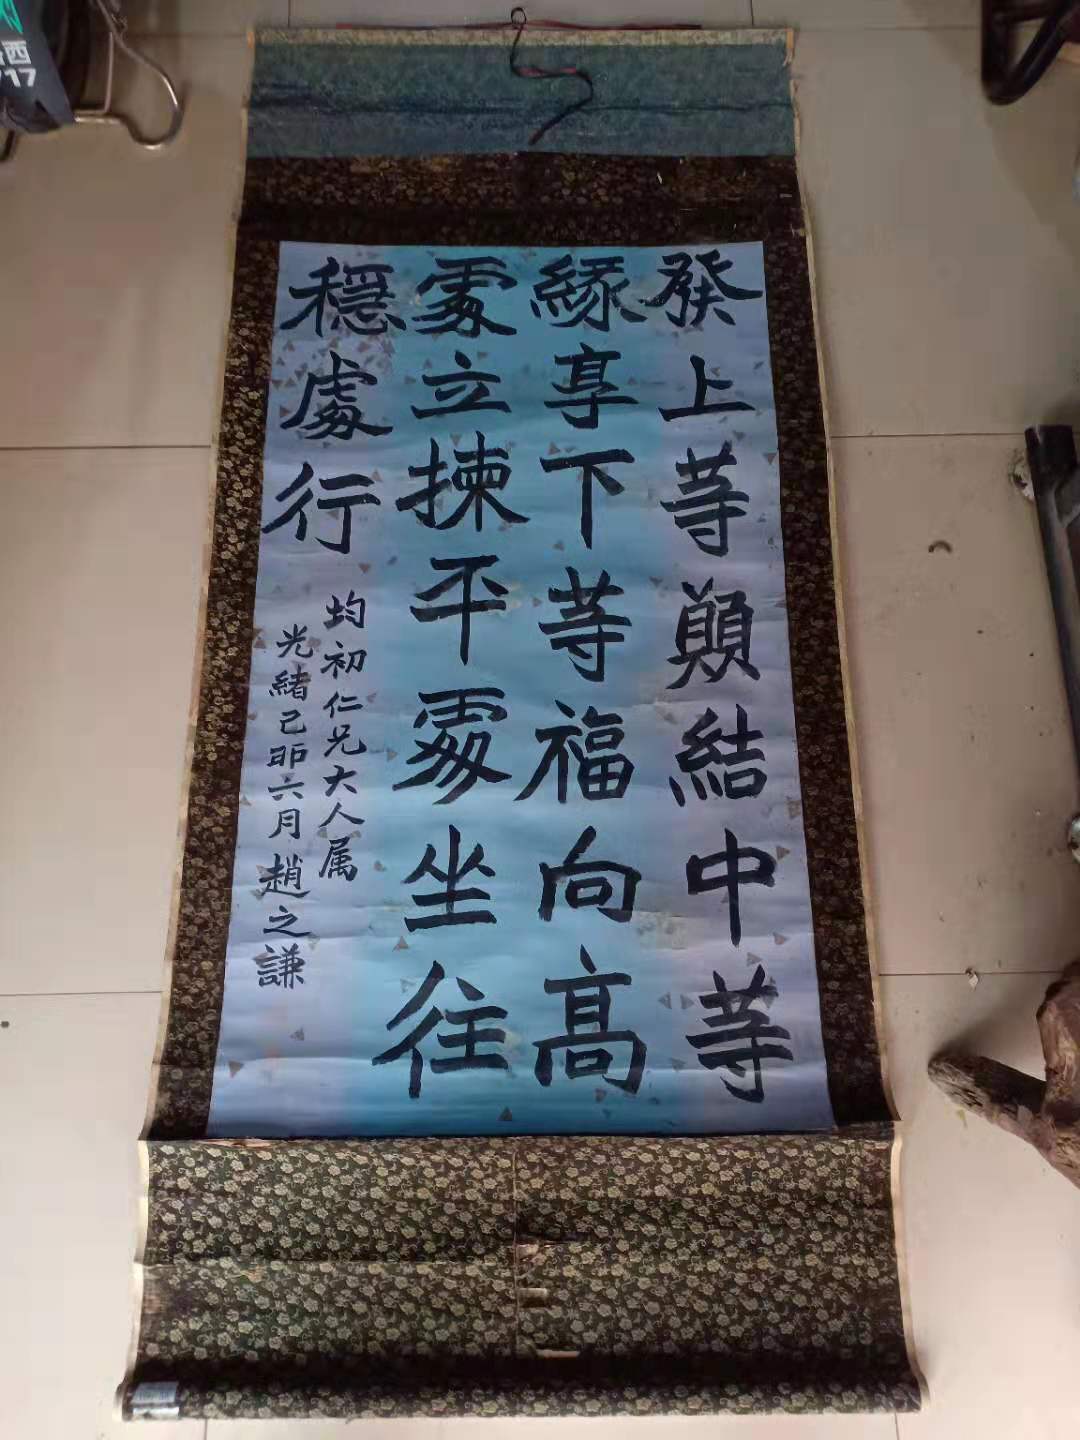 發上等願結中等
緣享下等福向高
處立揀平處坐往
穩處行
均初仁兄大人属
光緒己卯六月趙之謙
西
717